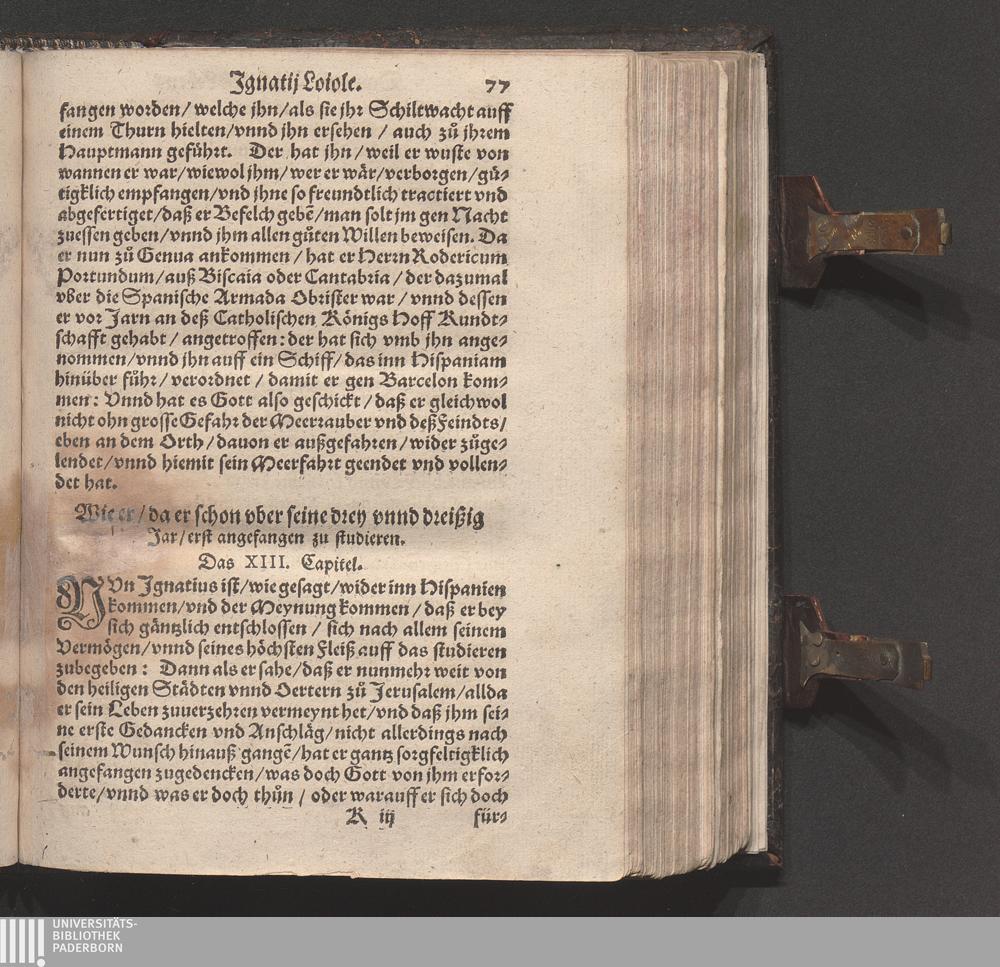 Ignatij Loiole. 77
fangen worden/ welche jhn/ als sie jhr Schiltwacht auff
einem Thurn hielten/ vnnd jhn ersehen / auch zů jhrem
Hauptmann geführt. Der hat jhn / weil er wuste von
wannen er war/ wiewol jhm/ wer er wär/ verborgen/ gü-
tigklich empfangen/ vnd jhne so freundtlich tractiert vnd
abgefertiget/ daß er Befelch gebẽ/ man solt jm gen Nacht
zuessen geben/ vnnd jhm allen gůten Willen beweisen. Da
er nun zů Genua ankommen / hat er Herrn Rodericum
Portundum/ auß Biscaia oder Cantabria / der dazumal
vber die Spanische Armada Obrister war / vnnd dessen
er vor Jarn an deß Catholischen Königs Hoff Kundt-
schafft gehabt / angetroffen: der hat sich vmb jhn ange-
nommen/ vnnd jhn auff ein Schiff/ das inn Hispaniam
hinüber führ/ verordnet / damit er gen Barcelon kom-
men: Vnnd hat es Gott also geschickt/ daß er gleichwol
nicht ohn grosse Gefahr der Meerrauber vnd deß Feindts/
eben an dem Orth/ dauon er außgefahren/ wider zůge-
lendet/ vnnd hiemit sein Meerfahrt geendet vnd vollen-
det hat.
Wie er/ da er schon vber seine drey vnnd dreißig
Jar/ erst angefangen zu studieren.
Das XIII. Capitel.
NVn Ignatius ist/ wie gesagt/ wider inn Hispanien
kommen/ vnd der Meynung kommen / daß er bey
sich gäntzlich entschlossen / sich nach allem seinem
Vermögen/ vnnd seines höchsten Fleiß auff das studieren
zubegeben: Dann als er sahe/ daß er nunmehr weit von
den heiligen Städten vnnd Oertern zů Jerusalem/ allda
er sein Leben zuuerzehren vermeynt het/ vnd daß jhm sei-
ne erste Gedancken vnd Anschläg/ nicht allerdings nach
seinem Wunsch hinauß gangẽ/ hat er gantz sorgfeltigklich
angefangen zugedencken/ was doch Gott von jhm erfor-
derte/ vnnd was er doch thůn / oder warauff er sich doch
K iij für-
UNIVERSITÄTS-
BIBLIOTHEK
PADERBORN